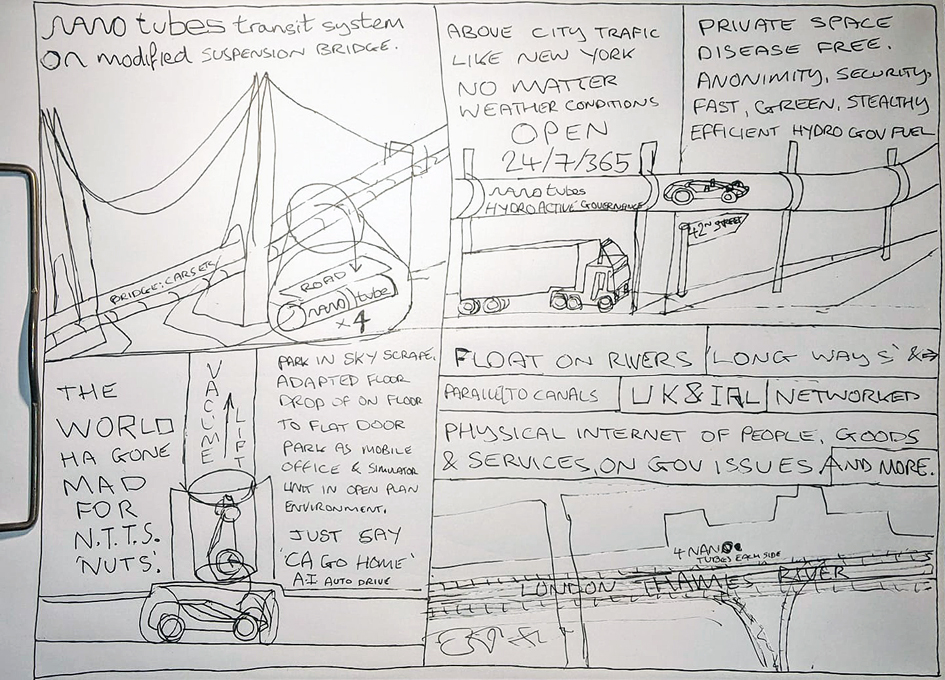 NANO tubes transit system
On modified SUSPENSION BRIDGE.
BRIDGE: CARS ETC
ROAD
NANO tube
x4
ABOVE CITY TRAFIC
LIKE NEW YORK
NO MATTER
WEATHER CONDITIONS
OPEN
24/7/365
PRIVATE SPACE
DISEASE FREE.
ANONIMITY, SECURITY,
FAST, GREEN, STEALTHY
EFFICIENT HYDRO GOV FUEL
NANO tubes
HYDROACTIVE GOVERNANCE
42ND STREET
THE
WORLD
HA GONE
MAD
FOR
N.T.T.S.
'NUTS'.
VACUME
LIFT
PARK IN SKY SCRAPE.
ADAPTED FLOOR
DROP OF ON FLOOR
TO FLAT DOOR
PARK AS MOBILE
OFFICE & SIMULATOR
UNIT IN OPEN PLAN
ENVIRONMENT.
JUST SAY
'CA GO HOME'
AI AUTO DRIVE
FLOAT ON RIVERS 'LONG WAYS' &
PARALLEL TO CANALS UK & IRL NETWORKED
PHYSICAL INTERNET OF PEOPLE, GOODS
& SERVICES, ON GOV ISSUES AND MORE.
4 NANO
TUBES EACH SIDE
LONDON THAMES RIVER